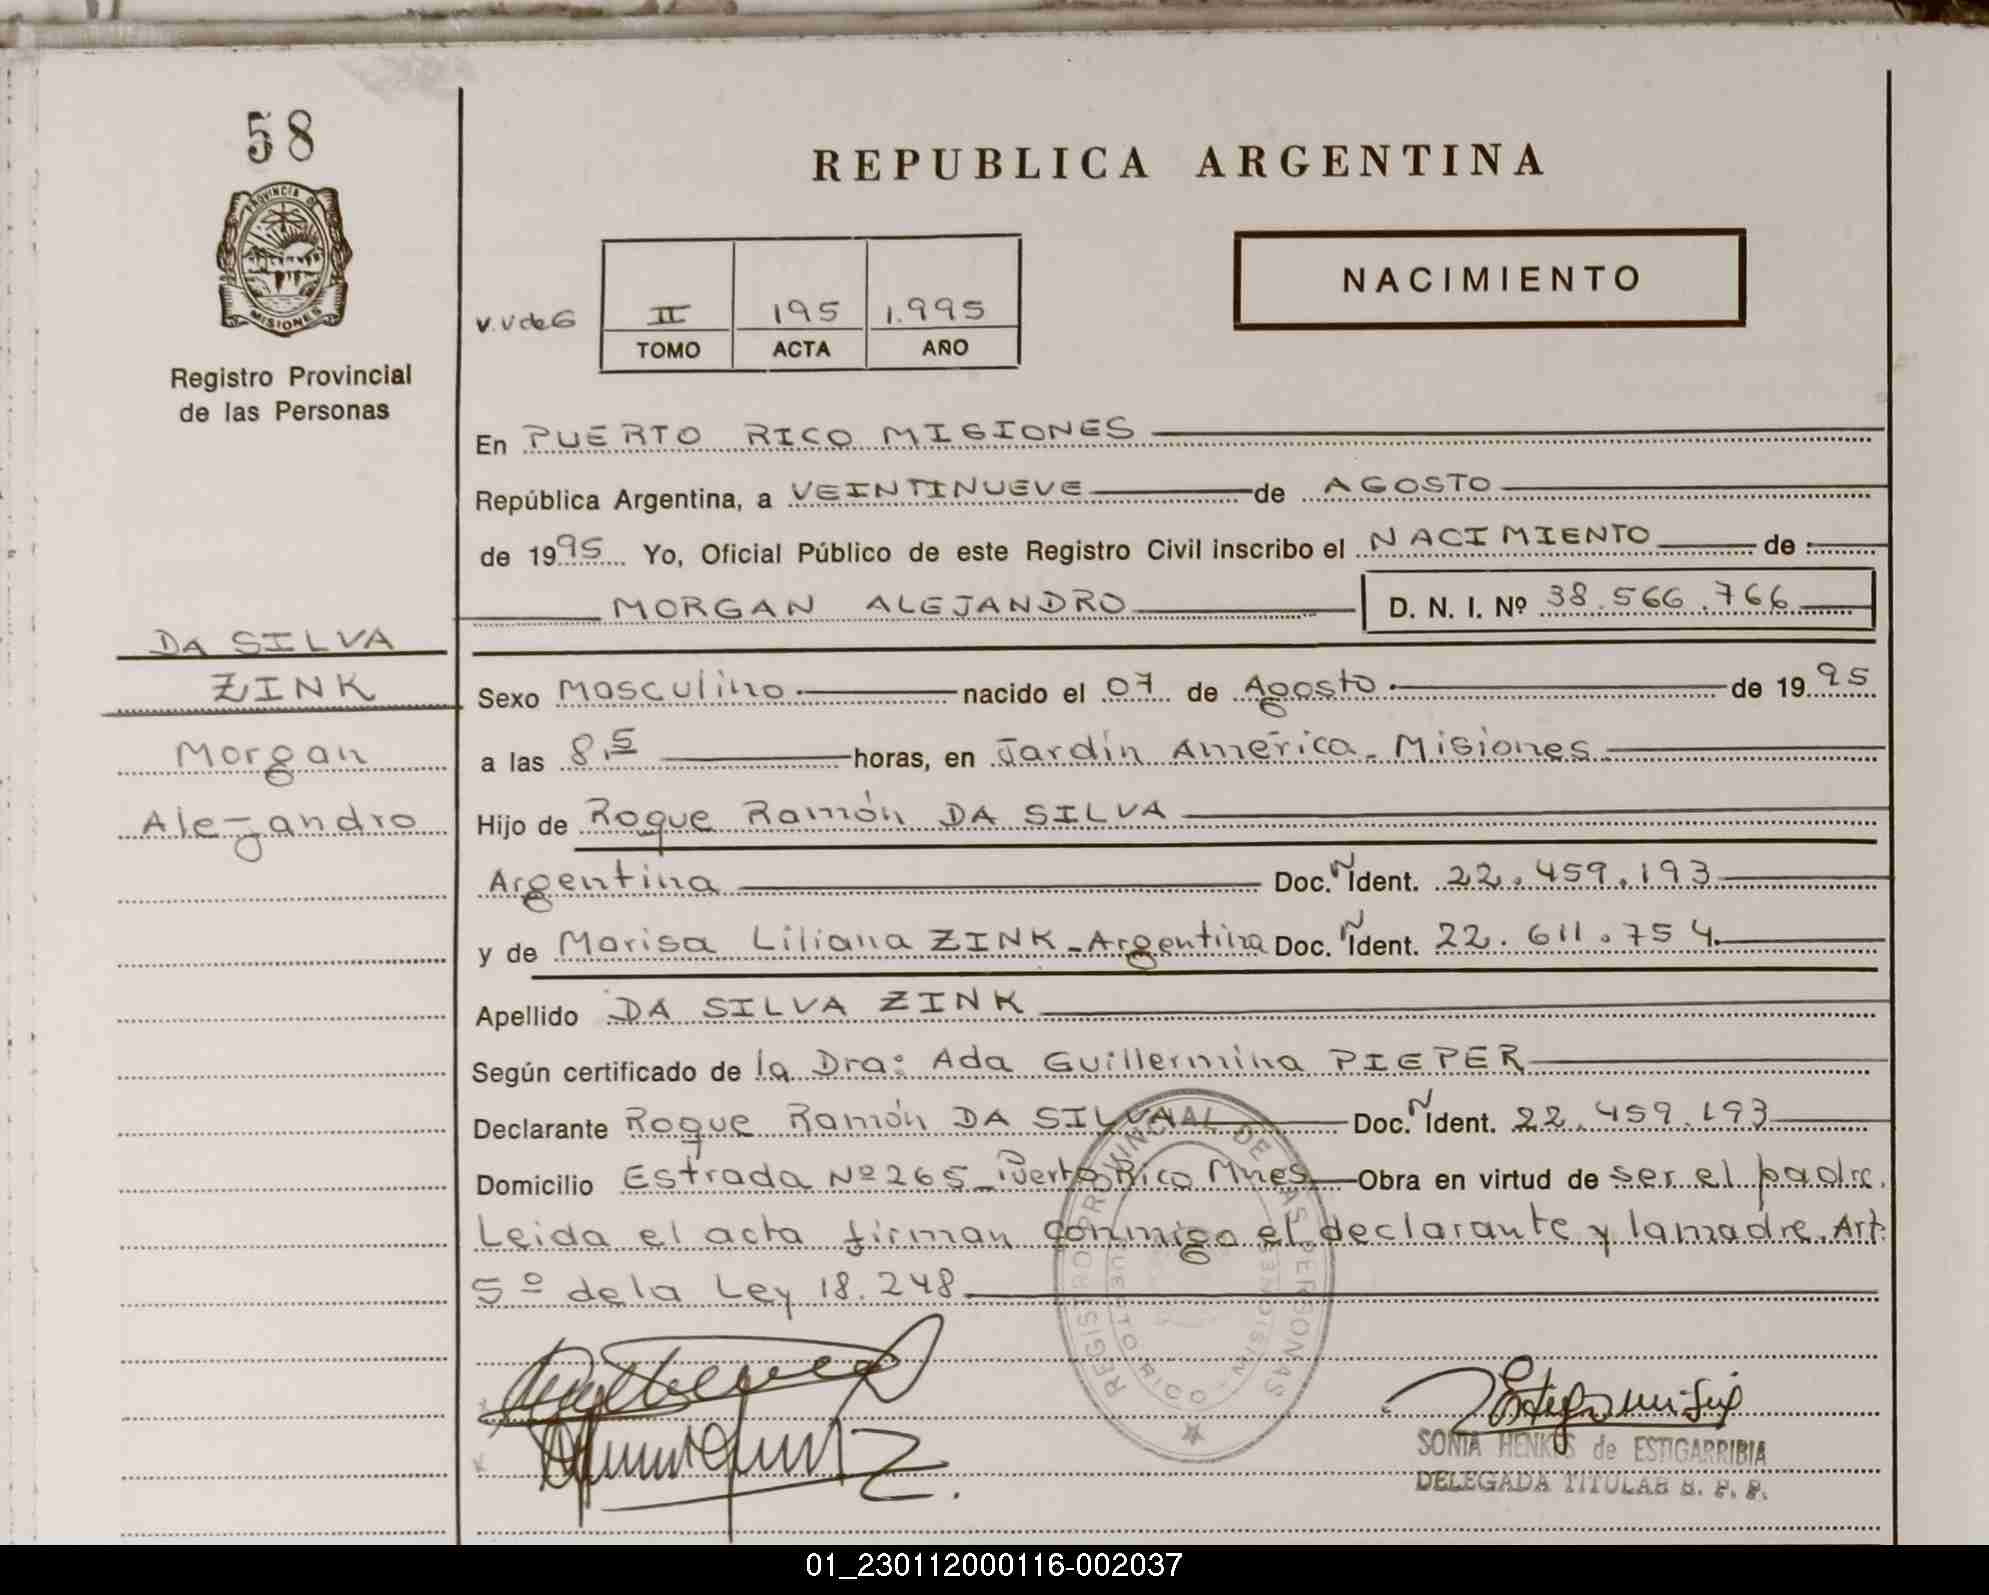 58
PROVINCIA DE
MISIONES
Registro Provincial
de las Personas
DA SILVA
ZINK
Morgan
Alejandro
REPUBLICA ARGENTINA
NACIMIENTO
V.V de G
II 195 1.995
TOMO ACTA AÑO
En PUERTO RICO MISIONES
República Argentina, a VEINTINUEVE de AGOSTO
de 1995 Yo, Oficial Público de este Registro Civil inscribo el NACIMIENTO de
MORGAN ALEJANDRO D. N. I. Nº 38.566.766
Sexo Masculino nacido el 07 de Agosto de 1995
a las 8,5 horas, en Jardín América - Misiones
Hijo de Roque Ramón DA SILVA
Argentina Doc. Ñ Ident. 22.459.193
y de Marisa Liliana ZINK - Argentina Doc. Ñ Ident. 22.611.754
Apellido DA SILVA ZINK
Según certificado de la Dra: Ada Guillermina PIEPER
Declarante Roque Ramón DA SILVA Doc. Ñ Ident. 22.459.193
Domicilio Estrada Nº 265 - Puerto Rico Mnes Obra en virtud de ser el padre.
Leida el acta firman conmigo el declarante y la madre. Art.
5º de la Ley 18.248
REGISTRO PROVINCIAL DE LAS PERSONAS
PUERTO RICO - MISIONES
SONIA HENKES de ESTIGARRIBIA
DELEGADA TITULAR R. P. P.
01_230112000116-002037